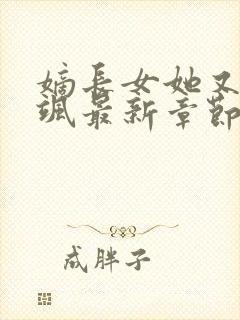 嫡长女她又
飒最新章节
成胖子